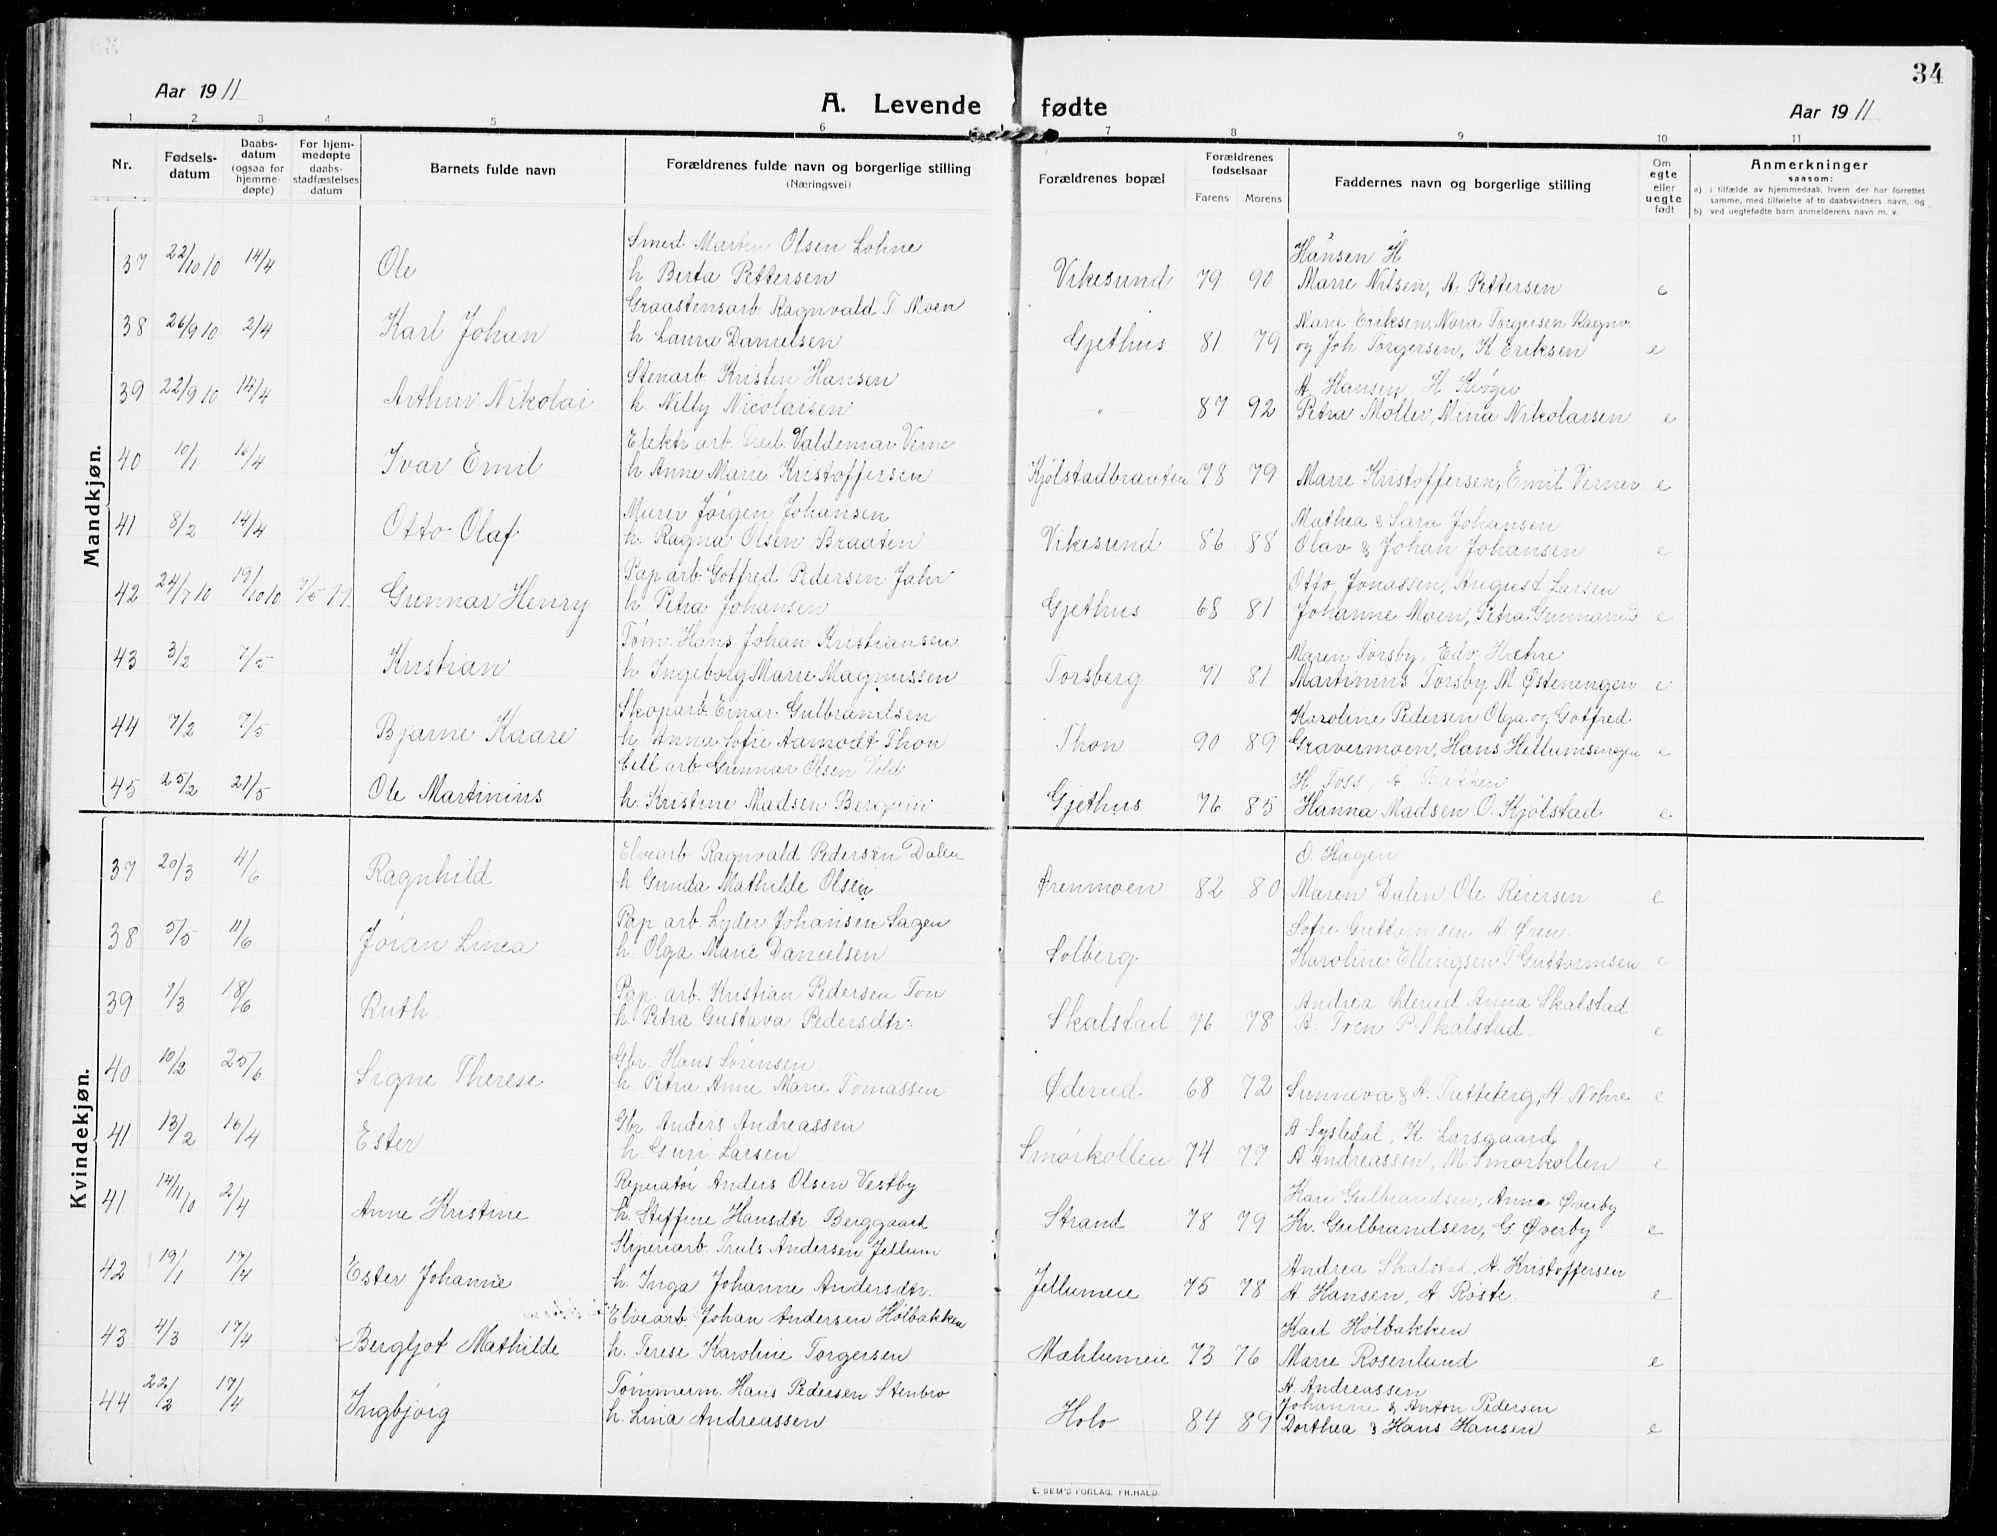 34
Aar 1911
A. Levende fødte
Aar 1911
1 2 3 4 5 6 7 8 9 10 11
Nr.
Fødsels-
datum
Daabs-
datum
(ogsaa for
hjemme-
døpte)
For hjem-
medøpte
daabs-
stadfæstelses
datum
Barnets fulde navn
Forældrenes fulde navn og borgerlige stilling
(Næringsvei)
Forældrenes bopæl
Forældrenes
fødselsaar
Farens Morens
Faddernes navn og borgerlige stilling
Om
egte
eller
uegte
født
Anmerkninger
saasom:
a) i tilfælde av hjemmedaab, hvem der har forrettet
samme, med tilføielse af to daabsvidners navn, og
b) ved uegtefødte barn anmelderens navn m. v.
Mandkjøn.
Smed Martin Olsen Lohne Hansen H
37 22/10 10 14/4 Ole h Berta Pettersen Vikesund 79 90 Marie Nilsen, A. Pettersen e
Graastensarb Ragnvald T Moen Marie Eriksen, Nora Torgersen Ragnv
38 26/9 10 2/4 Karl Johan h Laura Danielsen Gjethus 81 79 og Joh Torgersen, K Eriksen e
Stenarb Kristen Hansen A Hansen, H Krøger
39 22/9 10 14/4 Arthur Nikolai h Nelly Nicolaisen - " - 87 92 Petra Møller, Mina Nikolaisen e
Elektr arb. Fred. Valdemar Verne
40 10/1 16/4 Ivar Emil h Anne Marie Kristoffersen Kjølstadbraaten 78 79 Marie Kristoffersen, Emil Verner e
Murer Jørgen Johansen Mathea & Sara Johansen
41 8/2 14/4 Otto Olaf h. Ragna Olsen Braaten Vikesund 86 88 Olav & Johan Johansen e
Pap arb Gotfred Pedersen Jahr Otto Jonassen, August Larsen
42 24/7 10 19/10 10 7/5 11. Gunnar Henry h. Petra Johansen Gjethus 68 81 Johanne Moen, Petra Gunnarud e
Tøm. Hans Johan Kristiansen Maren Torsby, Edv. Hæhre
43 3/2 7/5 Kristian h Ingeborg Marie Magnussen Torsberg 71 81 Martinius Torsby M. Østenengen e
Skoparb. Einar Gulbrandsen Karoline Pedersen Olga og Gotfred
44 7/2 7/5 Bjarne Kaare h Anna Sofie Aamodt Thon Thon 90 89 Gravermoen, Hans Hellumsengen e
Cell arb Gunnar Olsen Vold H. Foss, A Bakken
45 25/2 21/5 Ole Martinius h. Kristine Madsen Bergum Gjethus 76 85 Hanna Madsen O. Kjølstad e
Kvindekjøn.
Elvearb Ragnvald Pedersen Dalen O. Hagen
37 20/3 4/6 Ragnhild h Gunda Mathilde Olsen Ørenmoen 82 80 Maren Dalen Ole Reiersen e
Pap. arb. Lyder Johansen Sagen Sofie Guttormsen A Øren
38 5/5 11/6 Jøran Linea h. Olga Marie Danielsen Solberg Karoline Ellingsen T. Guttormsen e
Pap. arb. Kristian Pedersen Ton Andrea Øderud Anna Skalstad
39 7/3 18/6 Ruth. h. Petra Gustava Pedersdtr. Skalstad 76 78 A. Tren P. Skalstad. e
Gbr. Hans Sørensen
40 10/2 25/6 Signe Therese h Petra Anne Marie Tomassen Øderud 68 72 Sunneva & A. Tutteberg, A. Nohre e
Gbr Anders Andreassen A Sysledal, K Larsgaard
41 13/2 16/4 Ester h. Guri Larsen Smørkollen 74 77 A Andreassen, M. Smørkollen e
Reperatør Anders Olsen Vestby Kari Gulbrandsen, Anna Øverby
41 14/11 10 2/4 Anne Kristine h. Steffine Hansdtr. Berggaard Strand 78 79 Kr. Gulbrandsen, G. Øverby e
Sliperiarb. Truls Andersen Jellum Andrea Skalstad, A. Kristoffersen
42 19/1 17/4 Ester Johanne h. Inga Johanne Andersdtr. Jellumeie 75 78 A. Hansen, A Røste. e
Elvearb Johan Andersen Holbakken Karl Holbakken
43 4/3 17/4 Bergljot Mathilde h. Terese Karoline Torgersen Mæhlumeie 73 76 Marie Rosenlund e
Tømmerm. Hans Pedersen Stenbro A. Andreassen
Johanne & Anton Pedersen
44 22/2 17/4 Ingbjørg h. Lina Andreassen Holo 84 89 Dorthea & Hans Hansen e
E. SEM'S FORLAG, FR.HALD.